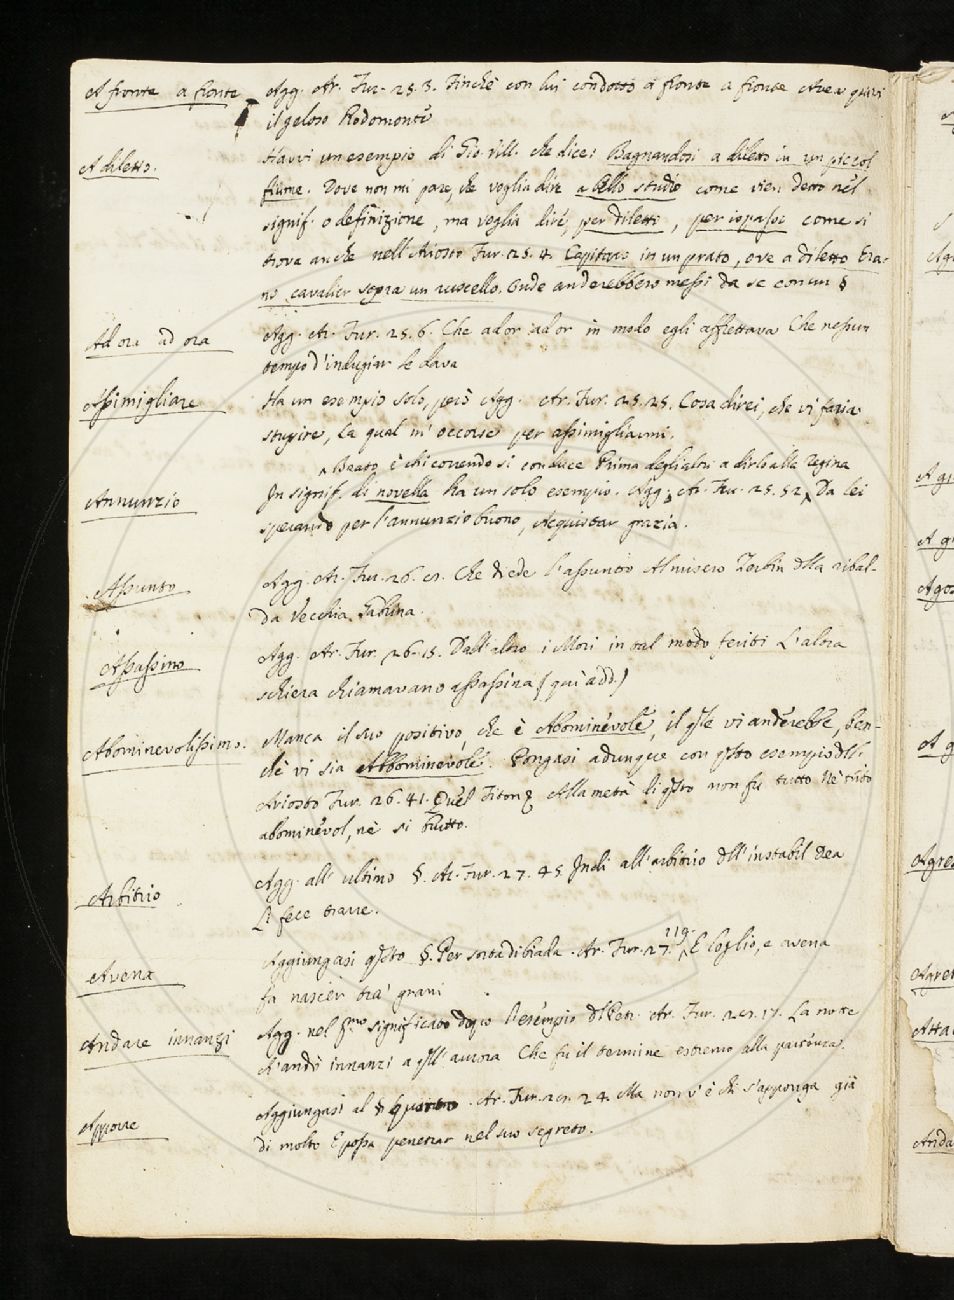 A fronte a fronte Agg. Ar. Fur. 25. 3. Finchè con lui condotto a fronte a fronte Avea quivi
il geloso Rodomonte
A diletto. Havvi un esempio di Gio. Vill. che dice: Bagnandosi a diletto in un piccol
fiume. Dove non mi pare, che voglia dire a bello studio come vien detto nel
signif. o definizione, ma voglia dire, per diletto, per ispasso come si
trova anche nell'Ariosto Fur. 25. 4. Capitaro in un prato, ove a diletto Era-
no cavalier sopra un ruscello. Onde anderebbero messi da se con un §
Ad ora ad ora Agg. Ar. Fur. 25. 6. Che ad or ad or in modo egli affrettava Che nessun
tempo d'indugiar le dava
Assimigliare Ha un esempio solo, però Agg. Ar. Fur. 25. 25. Cosa direi, che vi faria
stupire, La qual m'occorse per assimigliarmi.
Beato è chi correndo si conduce Prima degli altri a dirlo alla Regina
Annunzio In signif. di novella ha un solo esempio. Agg. Ar. Fur. 25. 52 Da lei
sperando per l'annunzio buono, Acquistar grazia.
Assunto Agg. Ar. Fur. 26. Che diede l'assunto Al misero Zerbin della ribal-
da Vecchia Gabrina.
Assassino Agg. Ar. Fur. 26. 15. Dall'altro i Mori in tal modo feriti L'altra
schiera chiamavano assassina (qui add.)
Abominevolissimo. Manca il suo positivo, che è Abominevole, il qle vi anderebbe, ben-
chè vi sia Abbominevole. Pongasi adunque con qsto esempio dell'
Ariosto Fur. 26. 41. Quel Fiton Alla metà di qsto non fu tutto Nè tanto
abominevol, nè sì brutto.
Arbitrio Agg. all'ultimo §. Ar. Fur. 27. 45 Indi all'arbitrio dll'instabil Dea
Li fece trarre.
119.
Avena Aggiungasi qsto §. Per sorta di biada. Ar. Fur. 27. E loglio, e avena
fa nascer tra' grani
Andare innanzi Agg. nel pmo significato dopo l'esempio di Petr. Ar. Fur. 17. La notte
A' andò innanzi a qll' aurora Che fu il termine estremo alla partenza.
Apporre Aggiungasi al § quarto. Ar. Fur. 24. Ma non v'è chi s'apponga già
di molto E possa penetrar nel suo segreto.